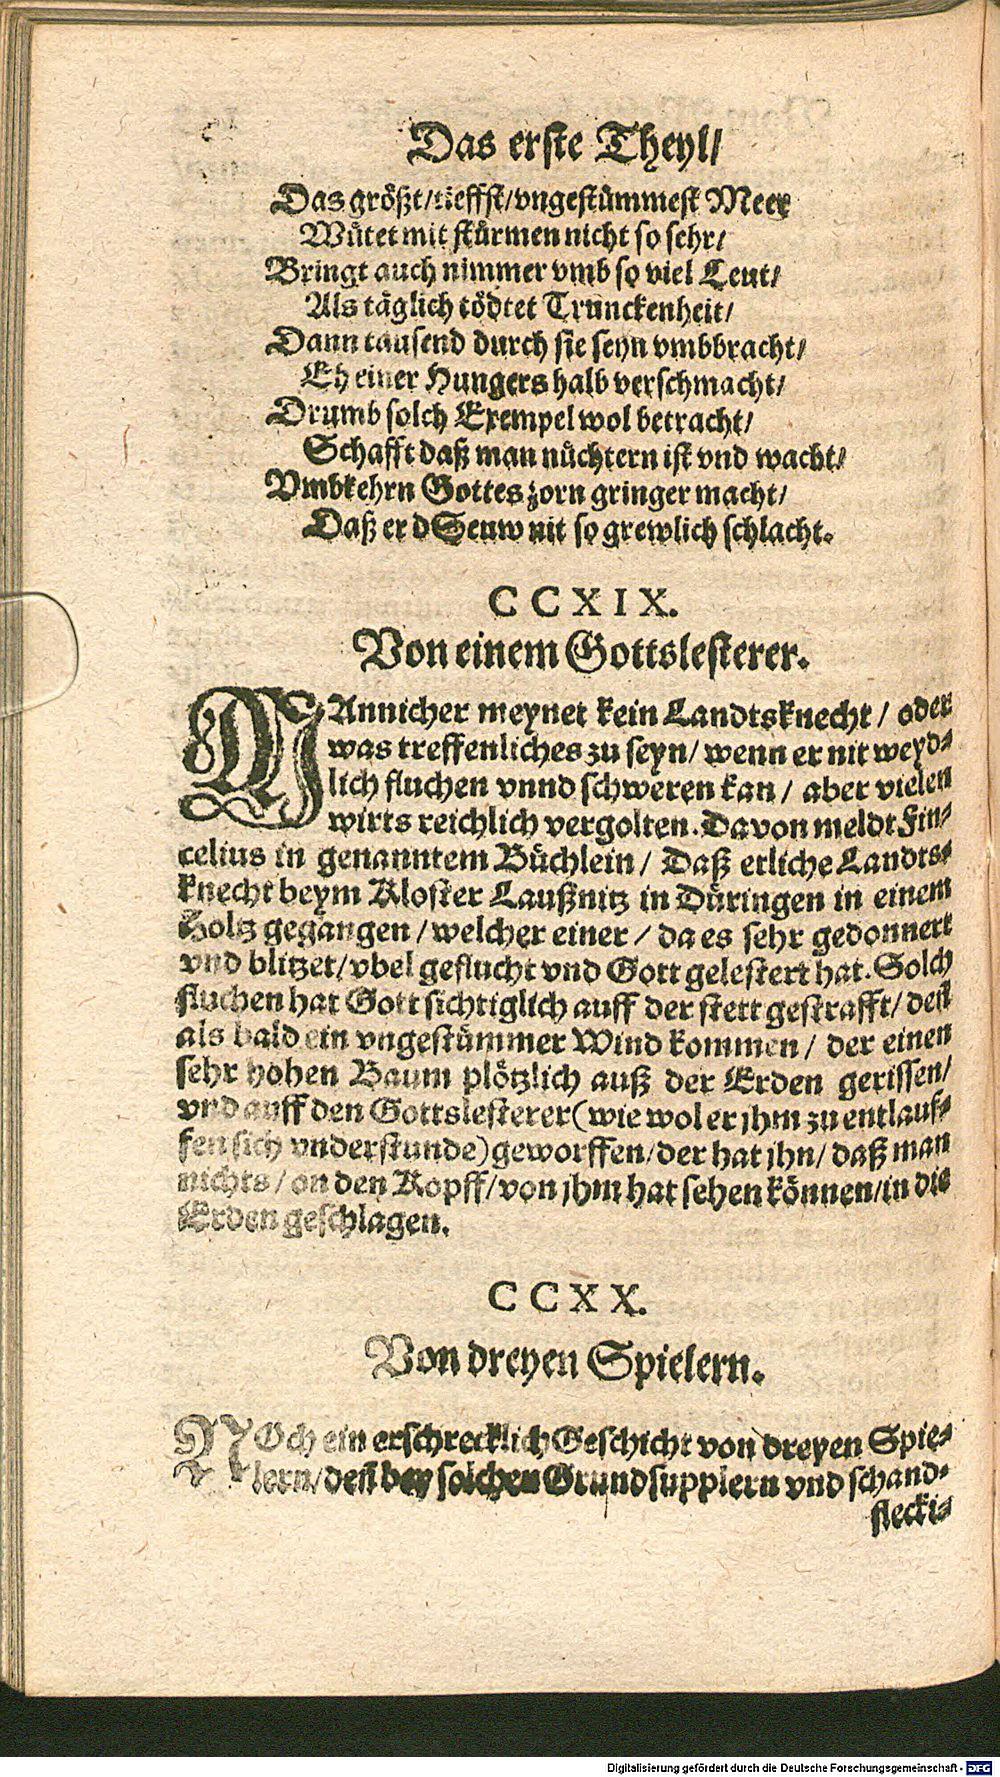 Das erste Theyl/
Das größt/tieffst/vngestümmest Meer
Wütet mit stürmen nicht so sehr/
Bringt auch nimmer vmb so viel Leut/
Als täglich tödtet Trunckenheit/
Dann tausend durch sie seyn vmbbracht/
Eh einer Hungers halb verschmacht/
Drumb solch Exempel wol betracht/
Schafft daß man nüchtern ist vnd wacht/
Vmbkehrn Gottes zorn gringer macht/
Daß er d Seuw nit so grewlich schlacht.
CCXIX.
Von einem Gottslesterer.
MAnnicher meynet kein Landtsknecht / oder
was treffenliches zu seyn/ wenn er nit weyd⸗
lich fluchen vnnd schweren kan / aber vielen
wirts reichlich vergolten. Davon meldt Fin⸗
celius in genanntem Büchlein / Daß etliche Landts⸗
knecht beym Kloster Laußnitz in Düringen in einem
Holtz gegangen / welcher einer / da es sehr gedonnert
vnd blitzet/vbel geflucht vnd Gott gelestert hat. Solch
fluchen hat Gott sichtiglich auff der stett gestrafft/ deñ
als bald ein vngestümmer Wind kommen / der einen
sehr hohen Baum plötzlich auß der Erden gerissen/
vnd auff den Gottslesterer (wie wol er jhm zu entlauf⸗
fen sich vnderstunde) geworffen/der hat jhn/ daß man
nichts / on den Kopff/ von jhm hat sehen können/in die
Erden geschlagen.
CCXX.
Von dreyen Spielern.
NOch ein erschrecklich Geschicht von dreyen Spie⸗
lern/deñ bey solchen Grundsupplern vnd schand⸗
flecki⸗
Digitalisierung gefördert durch die Deutsche Forschungsgemeinschaft - DFG